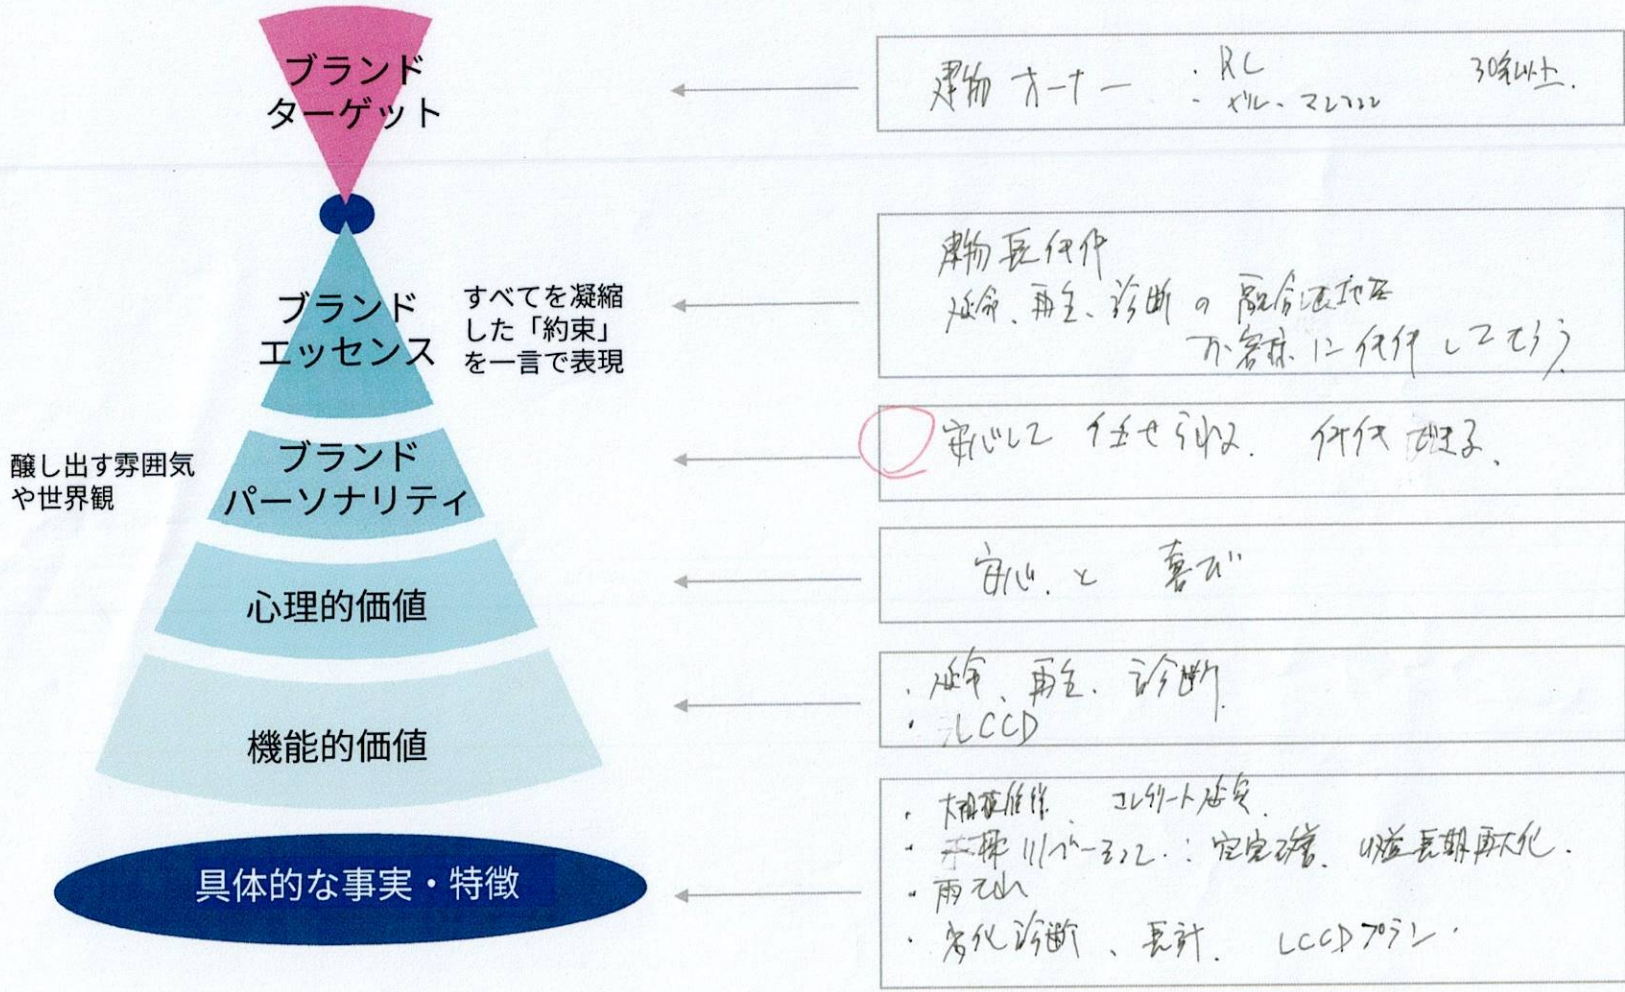 ブランド
ターゲット
建物オーナー
・RC
・ビル・マンション
30年以上.
ブランド
エッセンス
すべてを凝縮
した「約束」
を一言で表現
建物長
延命、再生、診断の
お客様に してもらう
醸し出す雰囲気
や世界観
ブランド
パーソナリティ
安心して 任せられる. できる、
心理的価値
安心と 喜び
機能的価値
・延命、再生、診断
・LCCD
具体的な事実・特徴
・大規模修繕、コンクリート
・リノベーション : 空室改善、収益長期
・雨
・劣化診断、長計. LCCDプラン.